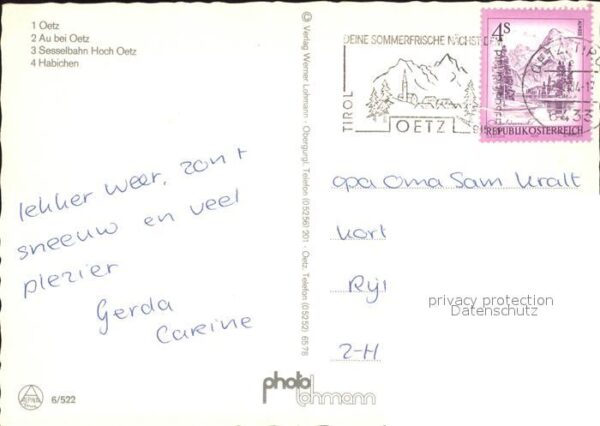 1 Oetz
2 Au bei Oetz
3 Sesselbahn Hoch Oetz
4 Habichen
© Verlag Werner Lohmann · Obergurgl, Telefon (05256) 201 · Oetz, Telefon (05252) 6578
DEINE SOMMERFRISCHE NÄCHST
TIROL
OETZ
4S
REPUBLIK ÖSTERREICH
OETZ, TIROL
6433
lekker weer, zon +
sneeuw en veel
plezier
Gerda
Carine
opa Oma Sam Kralt
Kort
Rijl
Z-H
privacy protection
Datenschutz
6/522
photo
lohmann